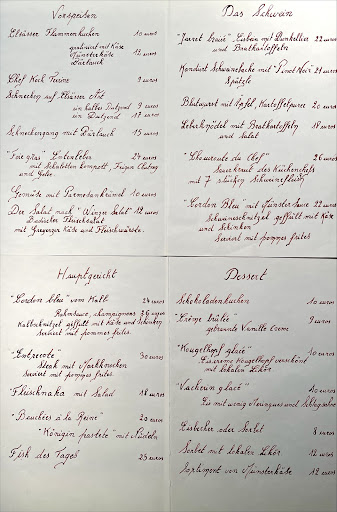 Vorspeisen
Elsässer Flammenkuchen 10 euros
gratiniert mit Käse
Münsterkäse 12 euros
Bärlauch
Chef Koch Terine 9 euros
Schnecken auf Elsässer Art
ein halbes Dutzend 9 euros
ein Dutzend 17 euros
Schneckengang mit Bärlauch 15 euros
"Foie gras" Entenleber 24 euros
mit Schalotten Kompott, Feigen Chutney
und Gelee.
Gemüse mit Parmesankrümel 10 euros
Der Salat nach "Winzer Salat" 12 euros
Badischer Fleischsalat
mit Greyerzer Käse und Fleischwürste.
Das Schwein
"Jarret braisé" Eisbein mit Dunkelbier 22 euros
und Bratkartoffeln
Kondurt Schweinebacke mit "Pinot Noir" 21 euros
Spätzle
Blutwurst mit Äpfel, Kartoffelpuree 20 euros
Leberknödel mit Bratkartoffeln 18 euros
und Salat
"Choucroute du Chef" 26 euros
Sauerkraut des Küchenchefs
mit 7 stücken Schweinefleisch
"Cordon Bleu" mit Münster Sauce 22 euros
Schweineschnitzel gefüllt mit Käse
und Schinken
Serviert mit pommes frites
Hauptgericht
"Cordon bleu" vom Kalb 24 euros
Rahmsauce, champignons 26 euros
Kalbschnitzel gefüllt mit Käse und Schinken
Serviert mit pommes frites.
"Entrecote" 30 euros
Steak mit Markknochen
Serviert mit pommes frites.
Fleischnaka mit Salad 18 euros
"Bouchées à la Reine" 20 euros
"Königin pastete" mit Nudeln
Fish des Tages 23 euros
Dessert
Schokoladenkuchen 10 euros
"Crème brûlée" 9 euros
gebrannte Vanille Creme
"Kougelhopf glacé" 10 euros
Eiscreme Kougelhopf verschönt
mit lokalen Likör
"Vacherin glacé" 10 euros
Eis mit wenig Meringues und Schlagsahne
Eisbecher oder Sorbet 8 euros
Sorbet mit lokalen Likör 12 euros
Sortiment von Münsterkäse 12 euros